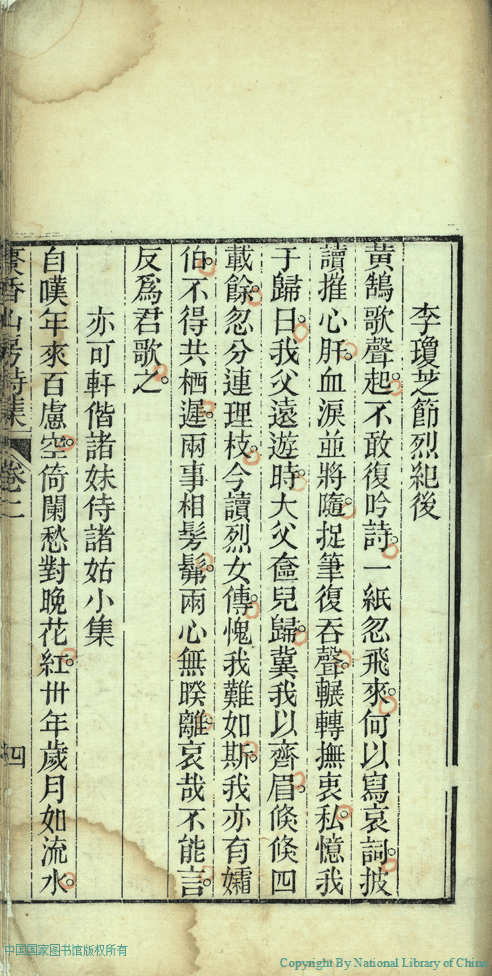 李瓊芝節烈紀後
黃鵠歌聲起不敢復吟詩一紙忽飛來何以寫哀詞披
讀摧心肝血淚並將隨捉筆復吞聲輾轉撫衷私憶我
于歸日我父遠遊時大父奩兒歸冀我以齊眉倏倏四
載餘忽分連理枝今讀烈女傳愧我難如斯我亦有孀
伯不得共栖遲兩事相髣髴兩心無暌離哀哉不能言
反爲君歌之
亦可軒偕諸妹侍諸姑小集
自嘆年來百慮空倚闌愁對晚花紅卅年歲月如流水
香山房詩集 卷二 四
中国国家图书馆版权所有
Copyright By National Library of China